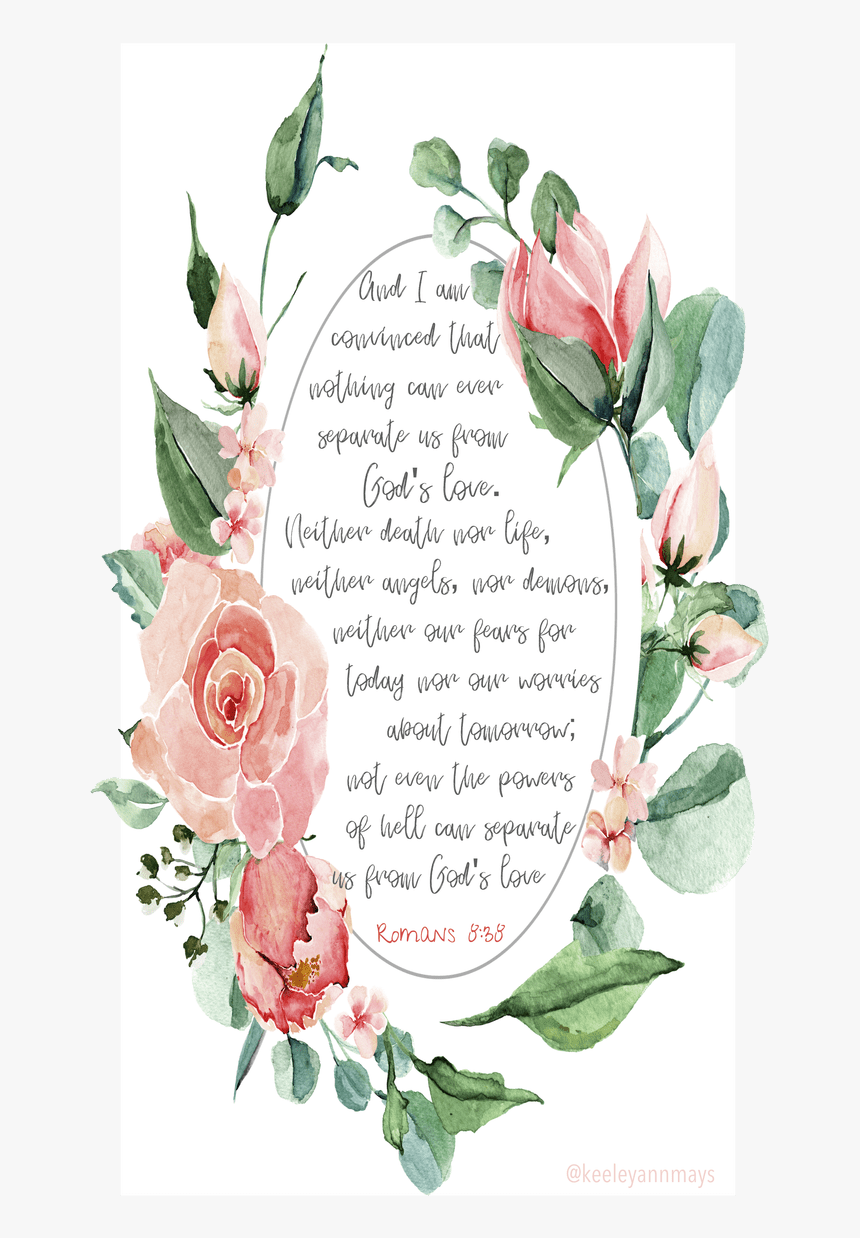 And I am
convinced that
nothing can ever
separate us from
God's love.
Neither death nor life,
neither angels, nor demons,
neither our fears for
today nor our worries
about tomorrow;
not even the powers
of hell can separate
us from God's love
Romans 8:38
@keeleyannmays